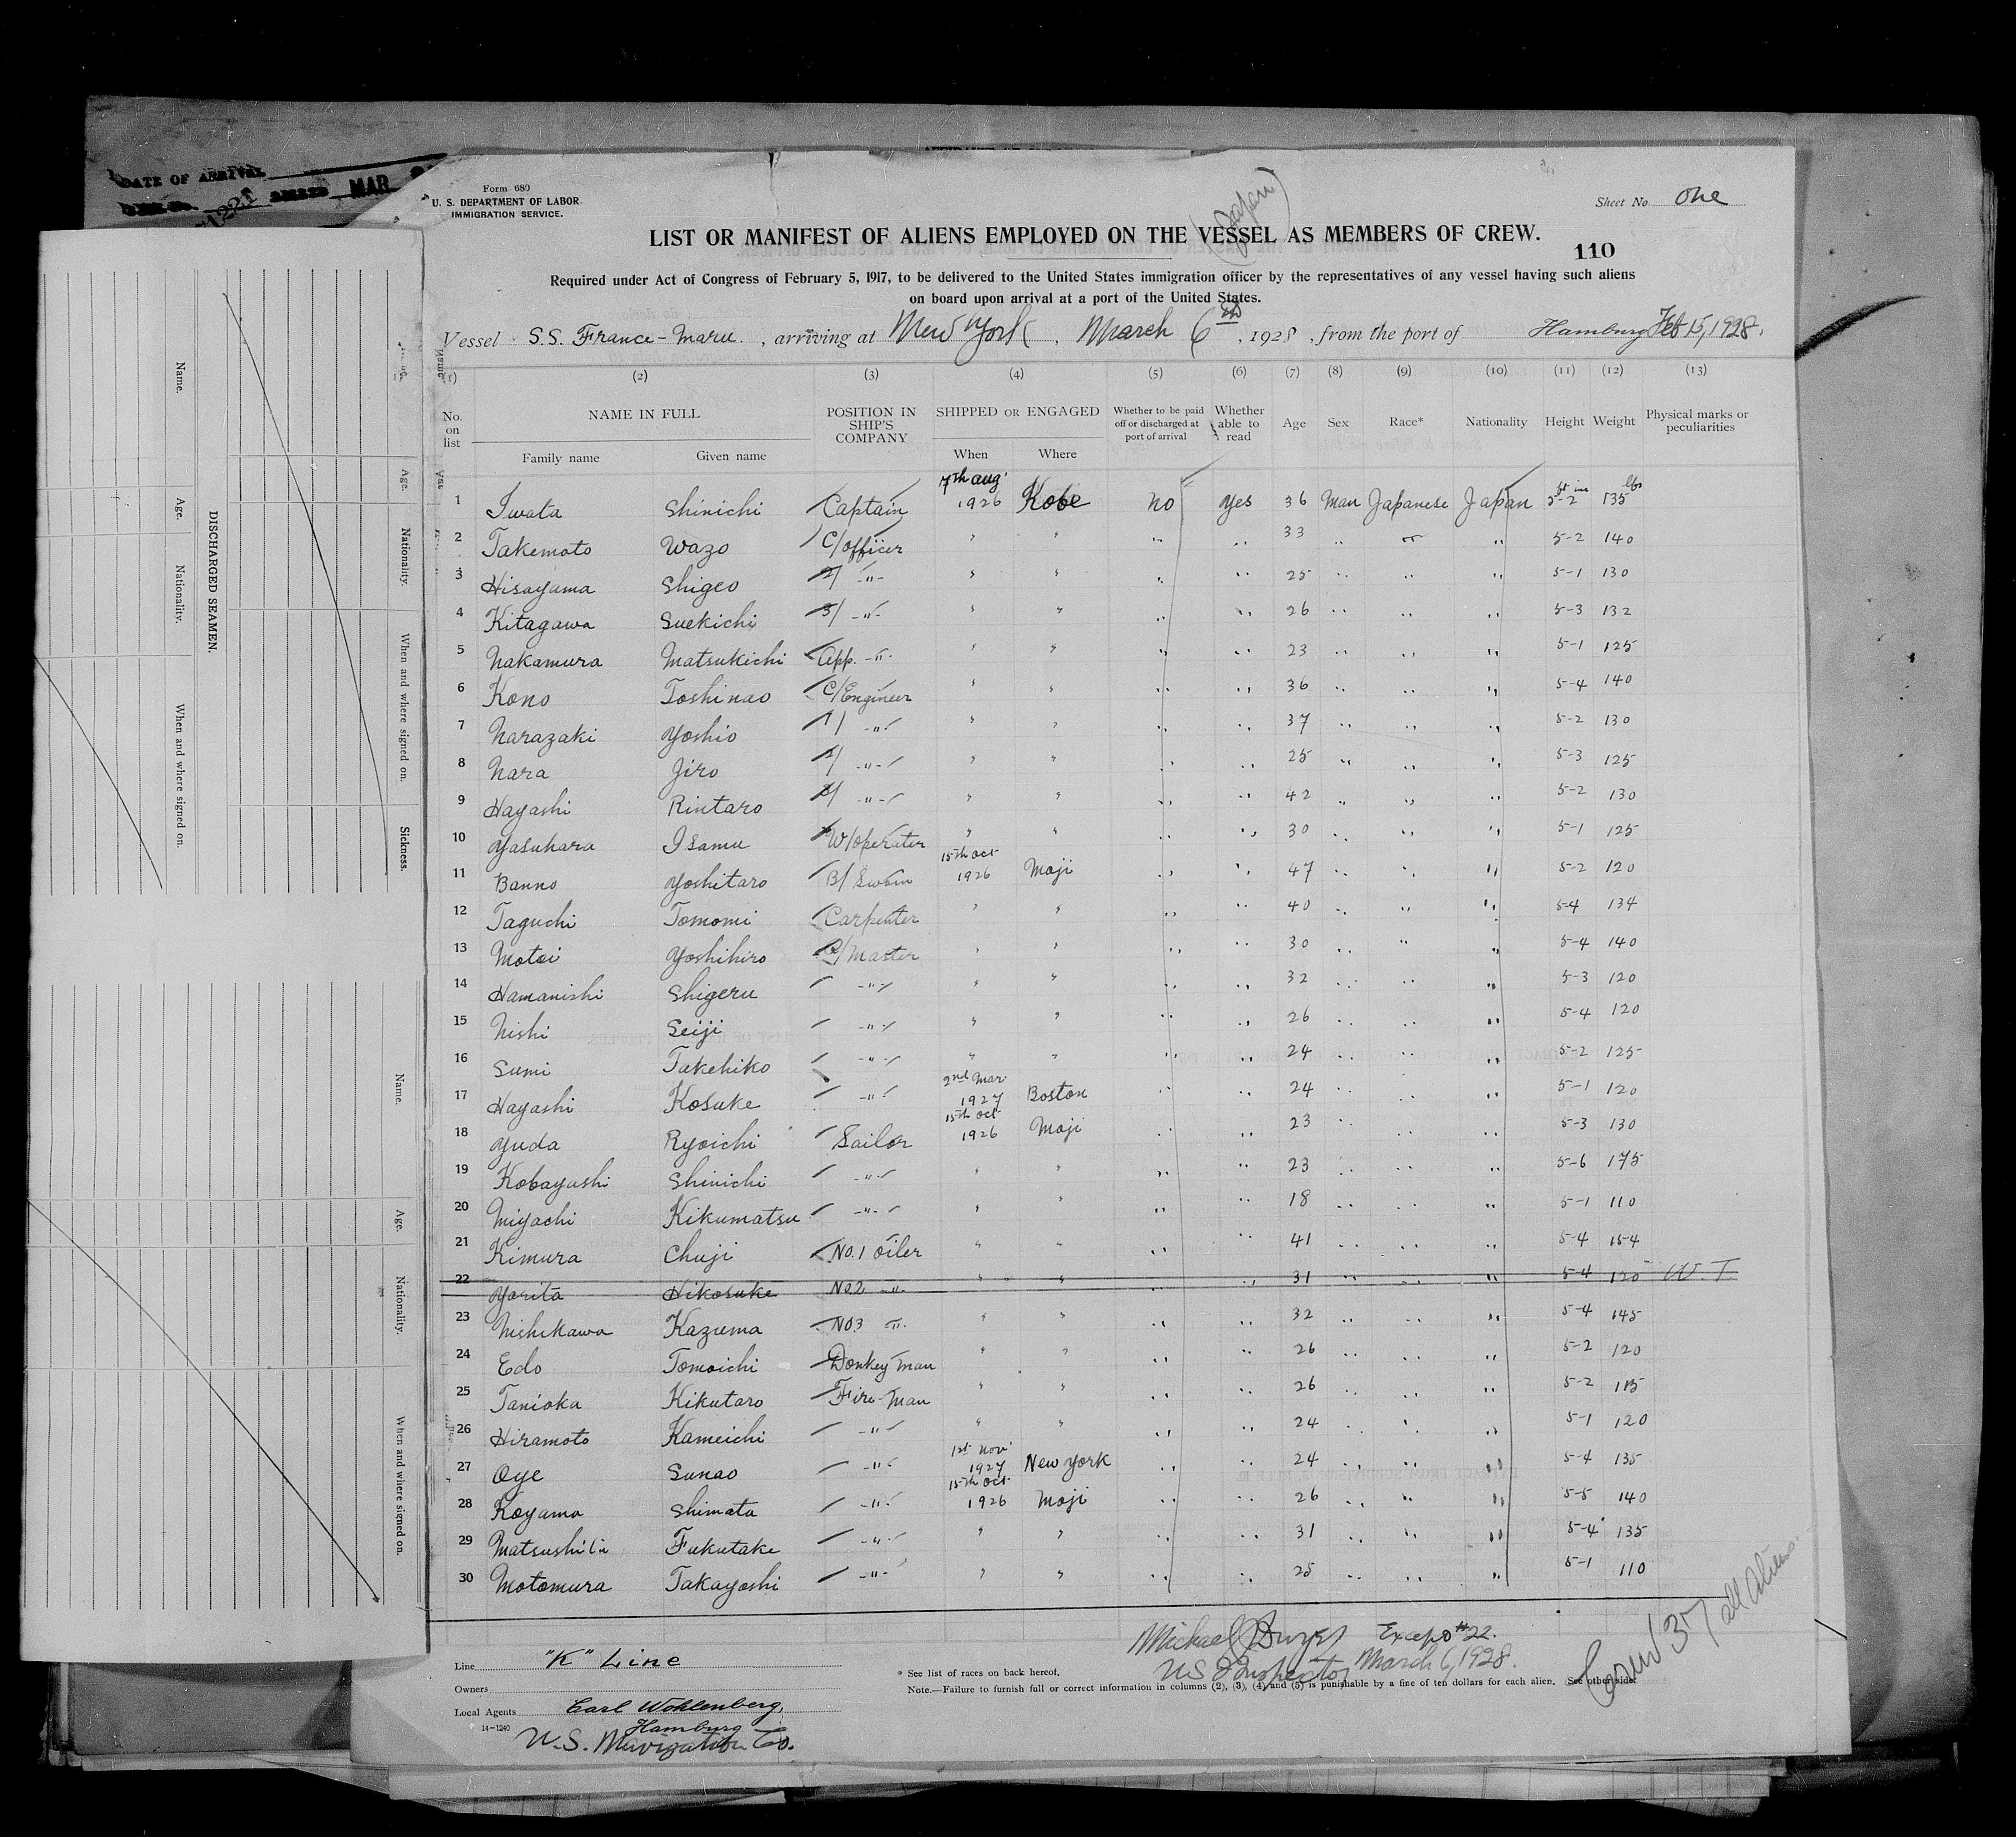 DATE OF ARRIVAL
MAR
Form 680
U. S. DEPARTMENT OF LABOR
IMMIGRATION SERVICE.
(Japan)
Sheet No. One
LIST OR MANIFEST OF ALIENS EMPLOYED ON THE VESSEL AS MEMBERS OF CREW.
110
Required under Act of Congress of February 5, 1917, to be delivered to the United States immigration officer by the representatives of any vessel having such aliens
on board upon arrival at a port of the United States.
Vessel S.S. France-Maru, arriving at New York, March 6th, 1928, from the port of Hamburg Feb 15, 1928.
(1) (2) (3) (4) (5) (6) (7) (8) (9) (10) (11) (12) (13)
No. on list NAME IN FULL Family name Given name POSITION IN SHIP'S COMPANY SHIPPED OR ENGAGED When Where Whether to be paid off or discharged at port of arrival Whether able to read Age Sex Race* Nationality Height Weight Physical marks or peculiarities
1 Iwata Shinichi Captain 7th Aug. 1926 Kobe No Yes 36 Man Japanese Japan 5 ft-2 ins 135 lbs
2 Takemoto Wazo C/Officer " " " " 33 " " " 5-2 140
3 Hisayama Shigeo 2/ -"- " " " " 25 " " " 5-1 130
4 Kitagawa Suekichi 3/ -"- " " " " 26 " " " 5-3 132
5 Nakamura Matsukichi App. -"- " " " " 23 " " " 5-1 125
6 Kono Toshinao C/Engineer " " " " 36 " " " 5-4 140
7 Narazaki Yoshio 1/ -"- " " " " 37 " " " 5-2 130
8 Nara Jiro 2/ -"- " " " " 25 " " " 5-3 125
9 Hayashi Rintaro 3/ -"- " " " " 42 " " " 5-2 130
10 Yasuhara Isamu W/operater " " " " 30 " " " 5-1 125
11 Banno Yoshitaro B/Swain 15th Oct 1926 Moji " " 47 " " " 5-2 120
12 Taguchi Tomomi Carpenter " " " " 40 " " " 5-4 134
13 Motoi Yoshihiro Q/Master " " " " 30 " " " 5-4 140
14 Hamanishi Shigeru -"- " " " " 32 " " " 5-3 120
15 Nishi Seiji -"- " " " " 26 " " " 5-4 120
16 Sumi Takehiko -"- " " " " 24 " " " 5-2 125
17 Hayashi Kosuke -"- 2nd Mar. 1927 Boston " " 24 " " " 5-1 120
18 Yuda Ryoichi Sailor 15th Oct 1926 Moji " " 23 " " " 5-3 130
19 Kobayashi Shinichi -"- " " " " 23 " " " 5-6 175
20 Miyachi Kikumatsu -"- " " " " 18 " " " 5-1 110
21 Kimura Chuji No.1 Oiler " " " " 41 " " " 5-4 154
22 Yorita Hikosuke No.2 -"- " " " " 31 " " " 5-4 120 W.T.
23 Nishikawa Kazuma No3 -"- " " " " 32 " " " 5-4 145
24 Edo Tomoichi Donkey man " " " " 26 " " " 5-2 120
25 Tanioka Kikutaro Fire-man " " " " 26 " " " 5-2 115
26 Hiramoto Kameichi -"- " " " " 24 " " " 5-1 120
27 Oye Sunao -"- 1st Nov. 1927 New York " " 24 " " " 5-4 135
28 Koyama Shimata -"- 15th Oct 1926 Moji " " 26 " " " 5-5 140
29 Matsushita Fukutake -"- " " " " 31 " " " 5-4 135
30 Motomura Takayoshi -"- " " " " 25 " " " 5-1 110
Michael Dwyer Except #22.
US Inspector March 6, 1928.
37 all Aliens
Line "K" Line
Owners
Local Agents Carl Wohlenberg,
Hamburg
14-1240
U.S. Navigation Co.
* See list of races on back hereof.
Note.—Failure to furnish full or correct information in columns (2), (3), (4) and (5) is punishable by a fine of ten dollars for each alien. See other side.
DISCHARGED SEAMEN.
Name. Age. Nationality. When and where signed on.
Age. Nationality. When and where signed on. Sickness.
Name. Age. Nationality. When and where signed on.